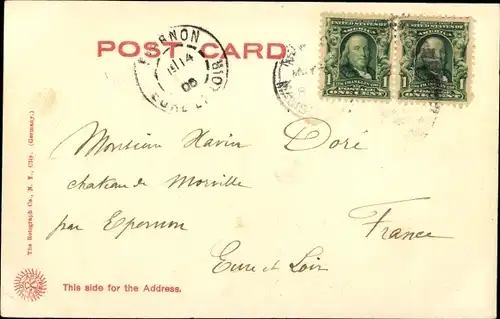 POST CARD
UNITED STATES OF AMERICA
FRANKLIN
POSTAGE
1 ONE CENT 1
UNITED STATES OF AMERICA
FRANKLIN
POSTAGE
1 ONE CENT 1
14
06
Monsieur Xavier Doré
chateau de Morville
par Epernon France
Eure et Loir
The Rotograph Co., N. Y. City. (Germany.)
This side for the Address.